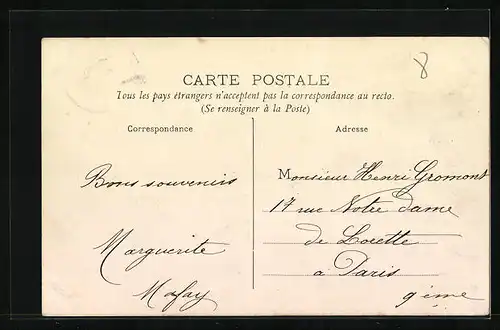 8
CARTE POSTALE
Tous les pays étrangers n'acceptent pas la correspondance au recto.
(Se renseigner à la Poste)
Correspondance
Adresse
Bons souvenirs
Marguerite
Monsieur Henri Gromont
17 rue Notre Dame
de Lorette
a Paris
9ème